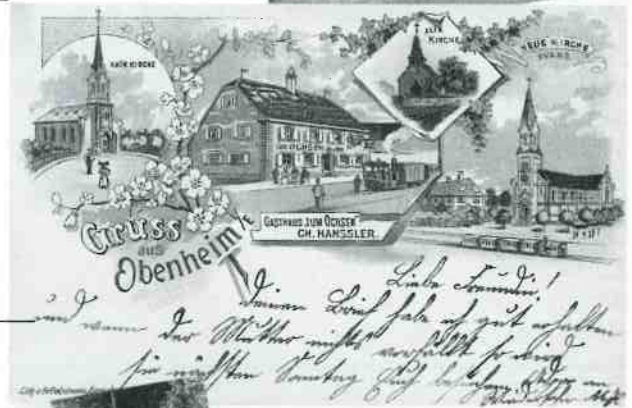 KATH. KIRCHE
ALTE KIRCHE
NEUE KIRCHE
EVANG.
ZUM OCHSEN
GASTHAUS „ZUM OCHSEN“
CH. HANSSLER.
Gruss
aus
Obenheim i/E
Liebe Freundin!
Deinen Brief habe ich gut erhalten
und wenn der Mutter nichts vorfällt so wird
sie nächsten Sonntag Euch besuchen.